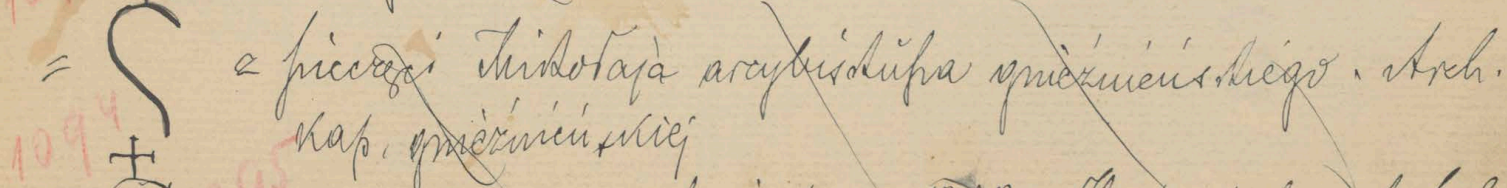 = z pieczęci Mikołaja arcybiskupa gnieźnieńskiego. Arch.
kap. gnieźnieńskiej
1094